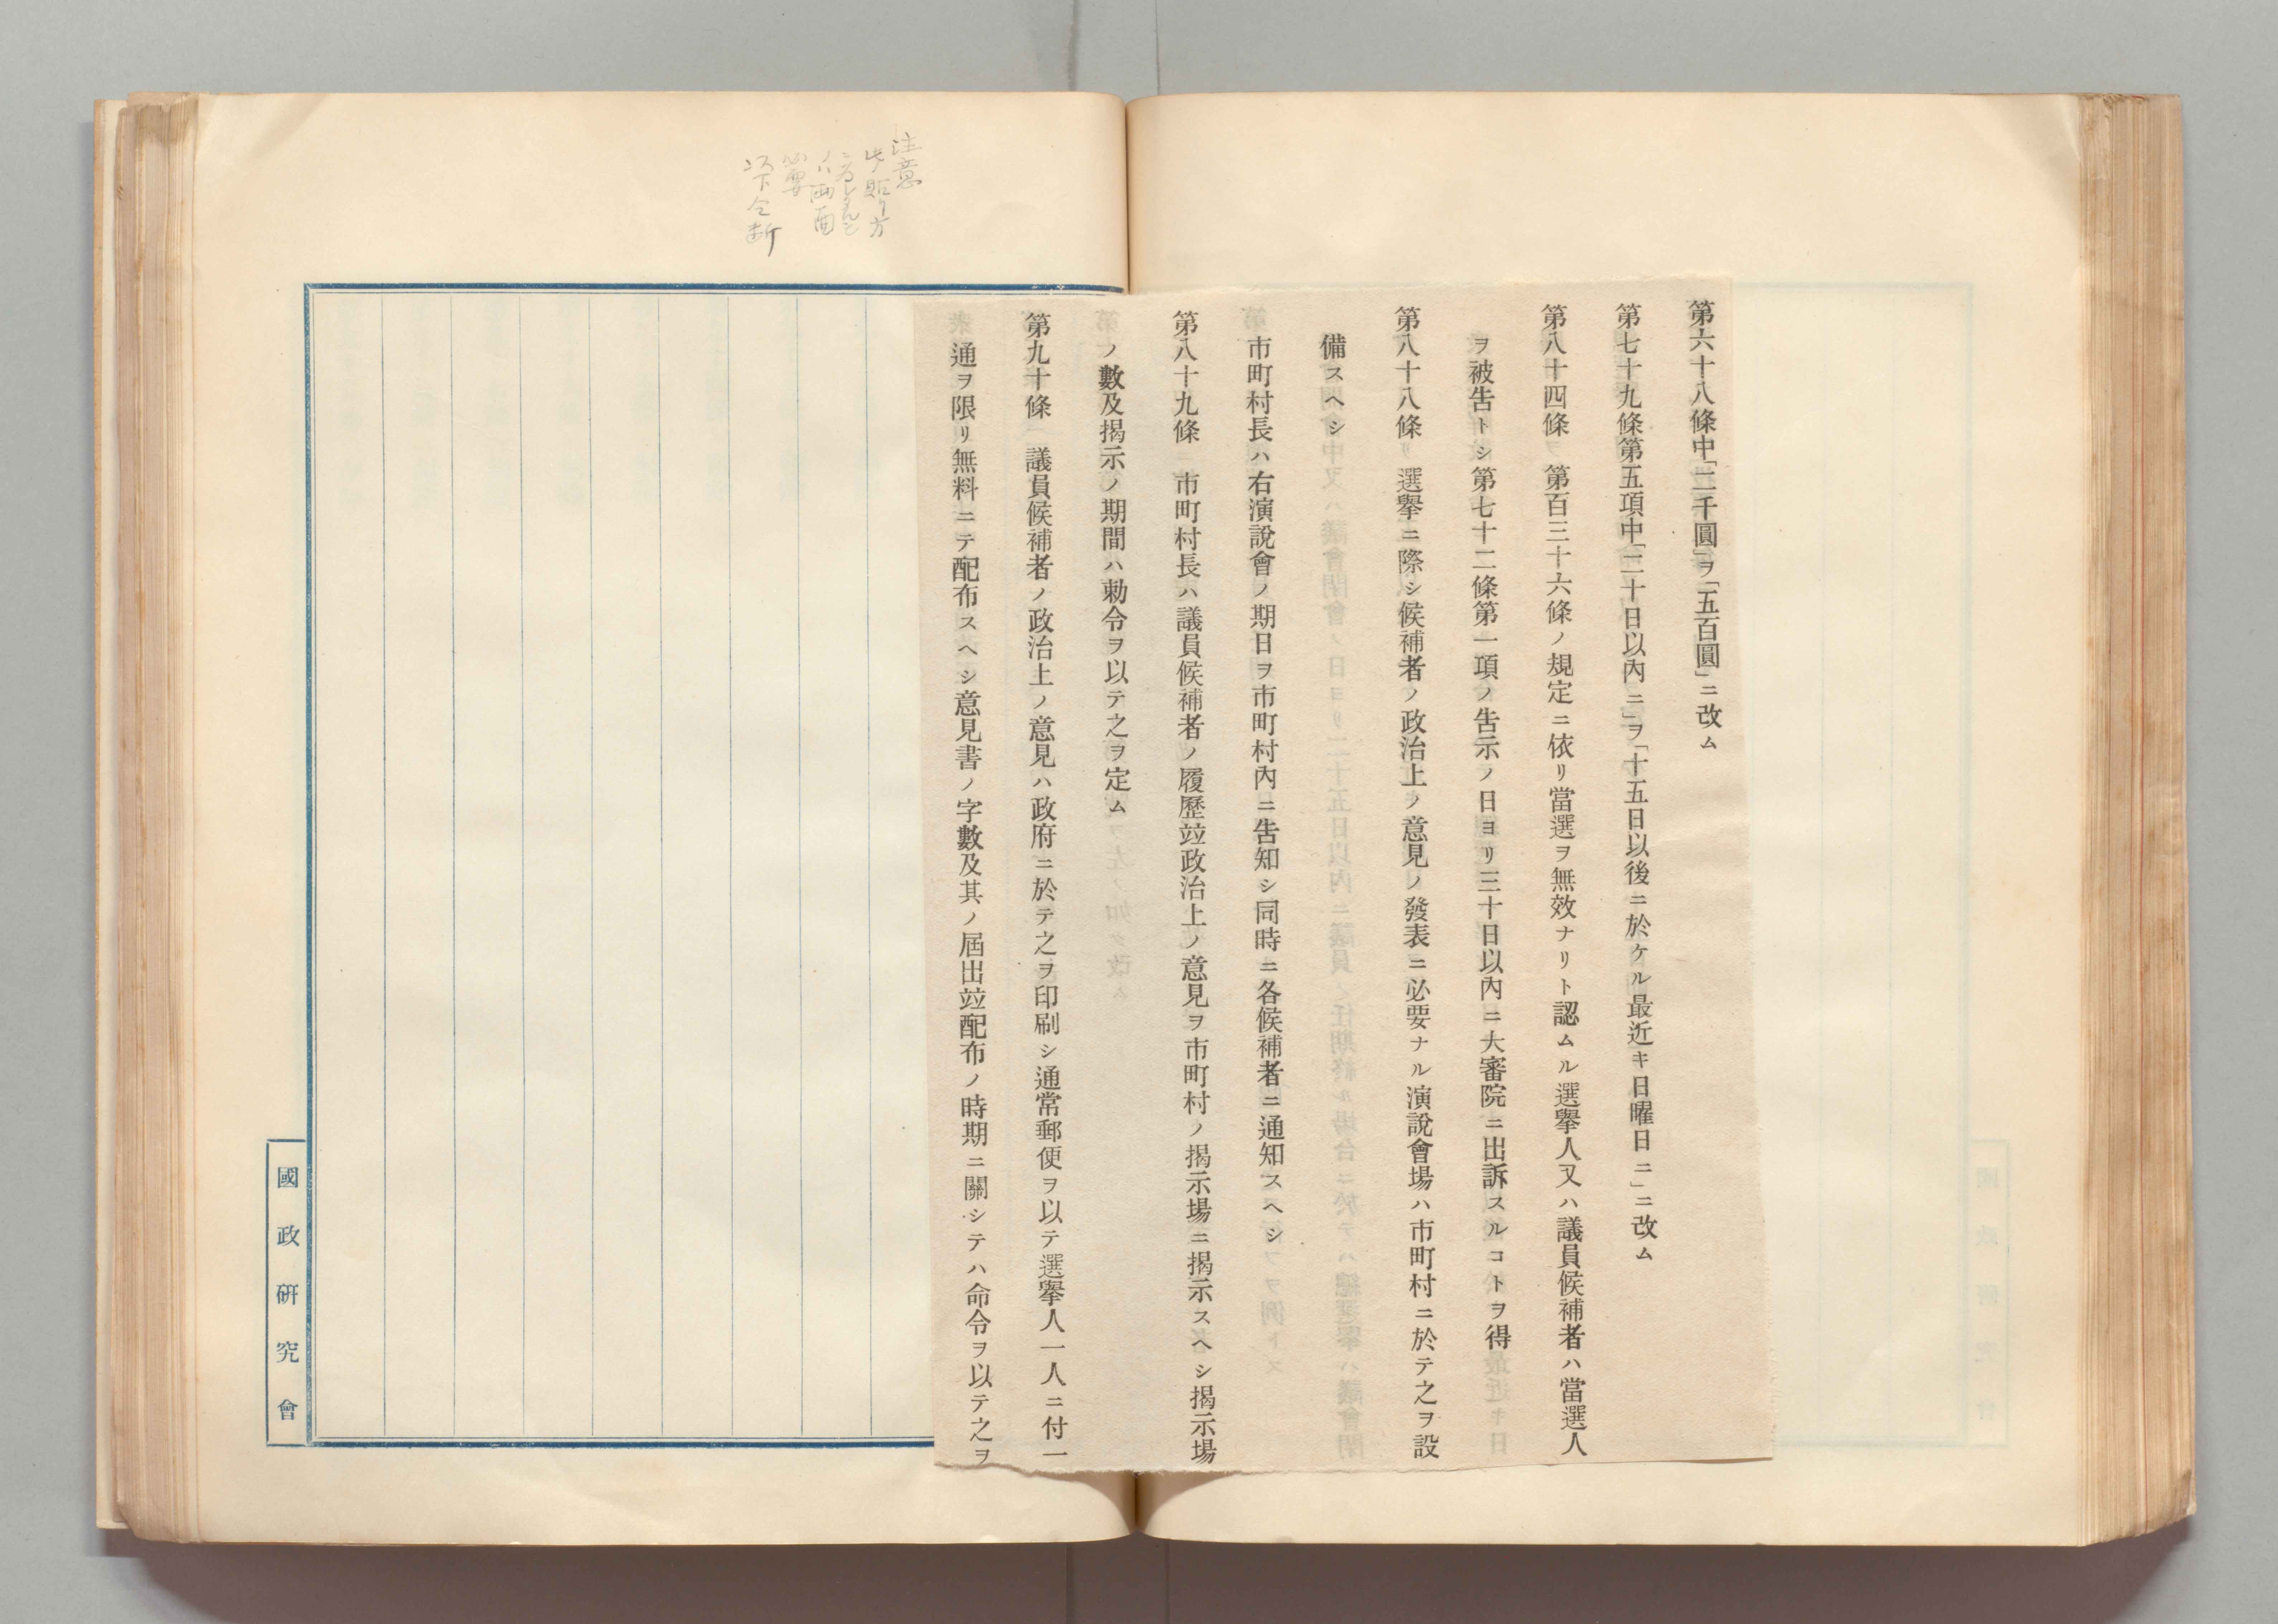 第六十八條中「二千圓」ヲ「五百圓」ニ改ム
第七十九條第五項中「二十日以內ニ」ヲ「十五日以後ニ於ケル最近キ日曜日ニ」ニ改ム
第八十四條　第百三十六條ノ規定ニ依リ當選ヲ無效ナリト認ムル選擧人又ハ議員候補者ハ當選人
ヲ被告トシ第七十二條第一項ノ告示ノ日ヨリ三十日以內ニ大審院ニ出訴スルコトヲ得
第八十八條　選擧ニ際シ候補者ノ政治上ノ意見ノ發表ニ必要ナル演說會場ハ市町村ニ於テ之ヲ設
備スヘシ
市町村長ハ右演說會ノ期日ヲ市町村內ニ告知シ同時ニ各候補者ニ通知スヘシ
第八十九條　市町村長ハ議員候補者ノ履歷竝政治上ノ意見ヲ市町村ノ揭示場ニ揭示スヘシ揭示場
ノ數及揭示ノ期間ハ勅令ヲ以テ之ヲ定ム
第九十條　議員候補者ノ政治上ノ意見ハ政府ニ於テ之ヲ印刷シ通常郵便ヲ以テ選擧人一人ニ付一
通ヲ限リ無料ニテ配布スヘシ意見書ノ字數及其ノ屆出竝配布ノ時期ニ關シテハ命令ヲ以テ之ヲ
注意
此貼リ方
ノハ両面
必要
以下全断
國政硏究會